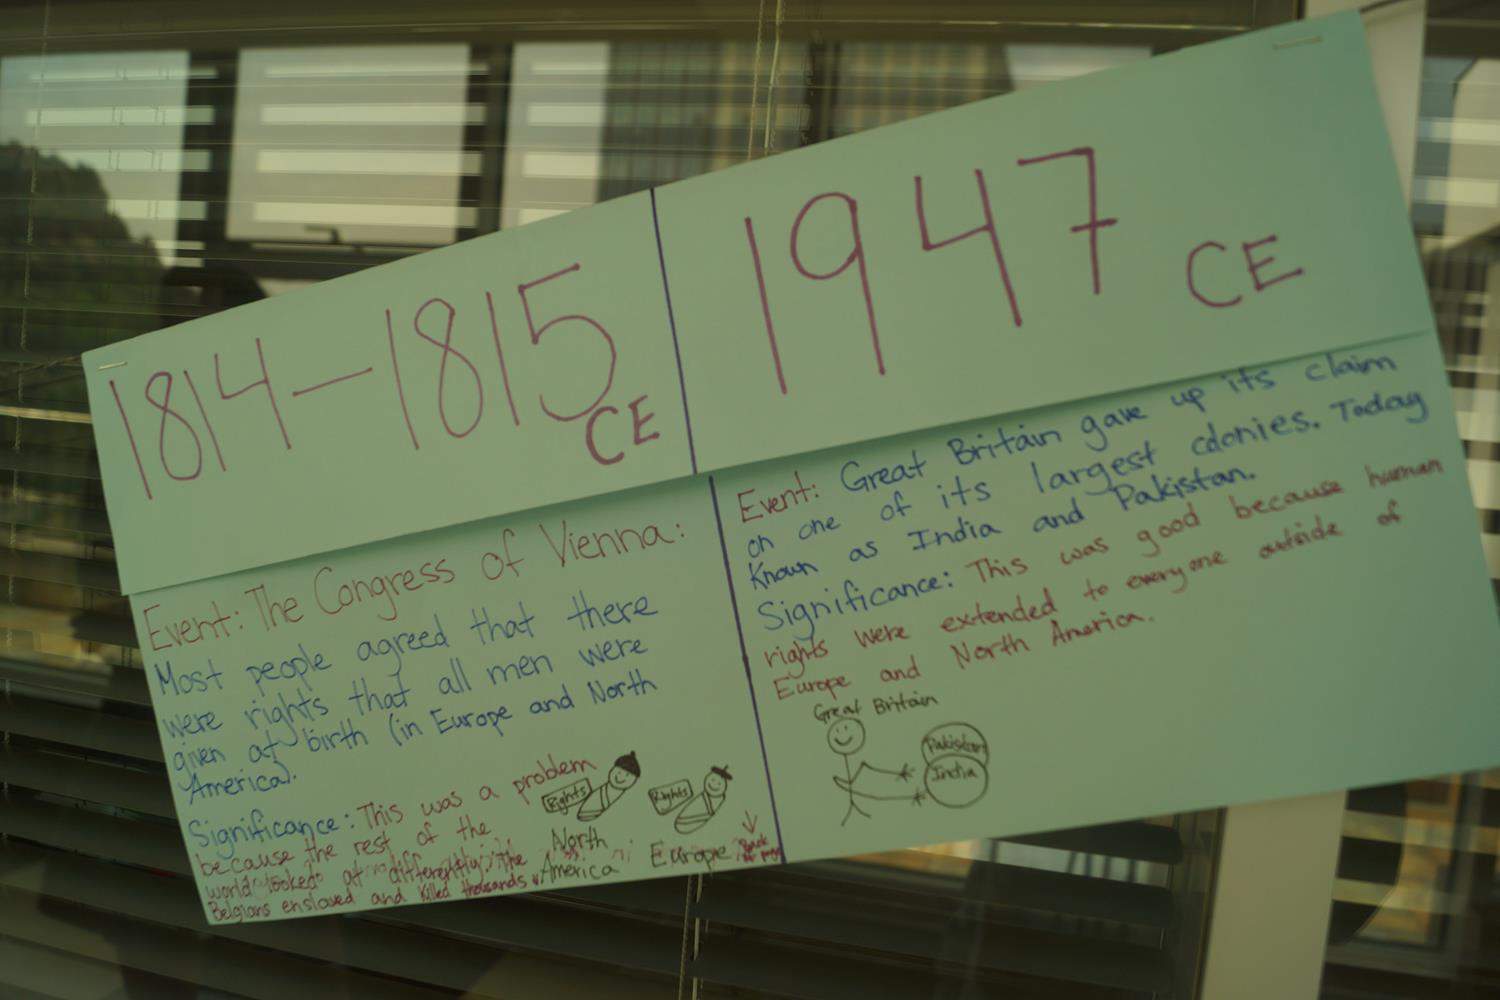 1814-1815
CE
Event: The Congress of Vienna:
Most people agreed that there
were rights that all men were
given at birth (in Europe and North
America).
Significance: This was a problem
because the rest of the
world looked at differently. The
Belgians enslaved and killed thousands
Rights
North
America
Rights
Europe
1947
CE
Event: Great Britain gave up its claim
on one of its largest colonies. Today
Known as India and Pakistan.
Significance: This was good because human
rights were extended to everyone outside of
Europe and North America.
Great Britain
Pakistan
India